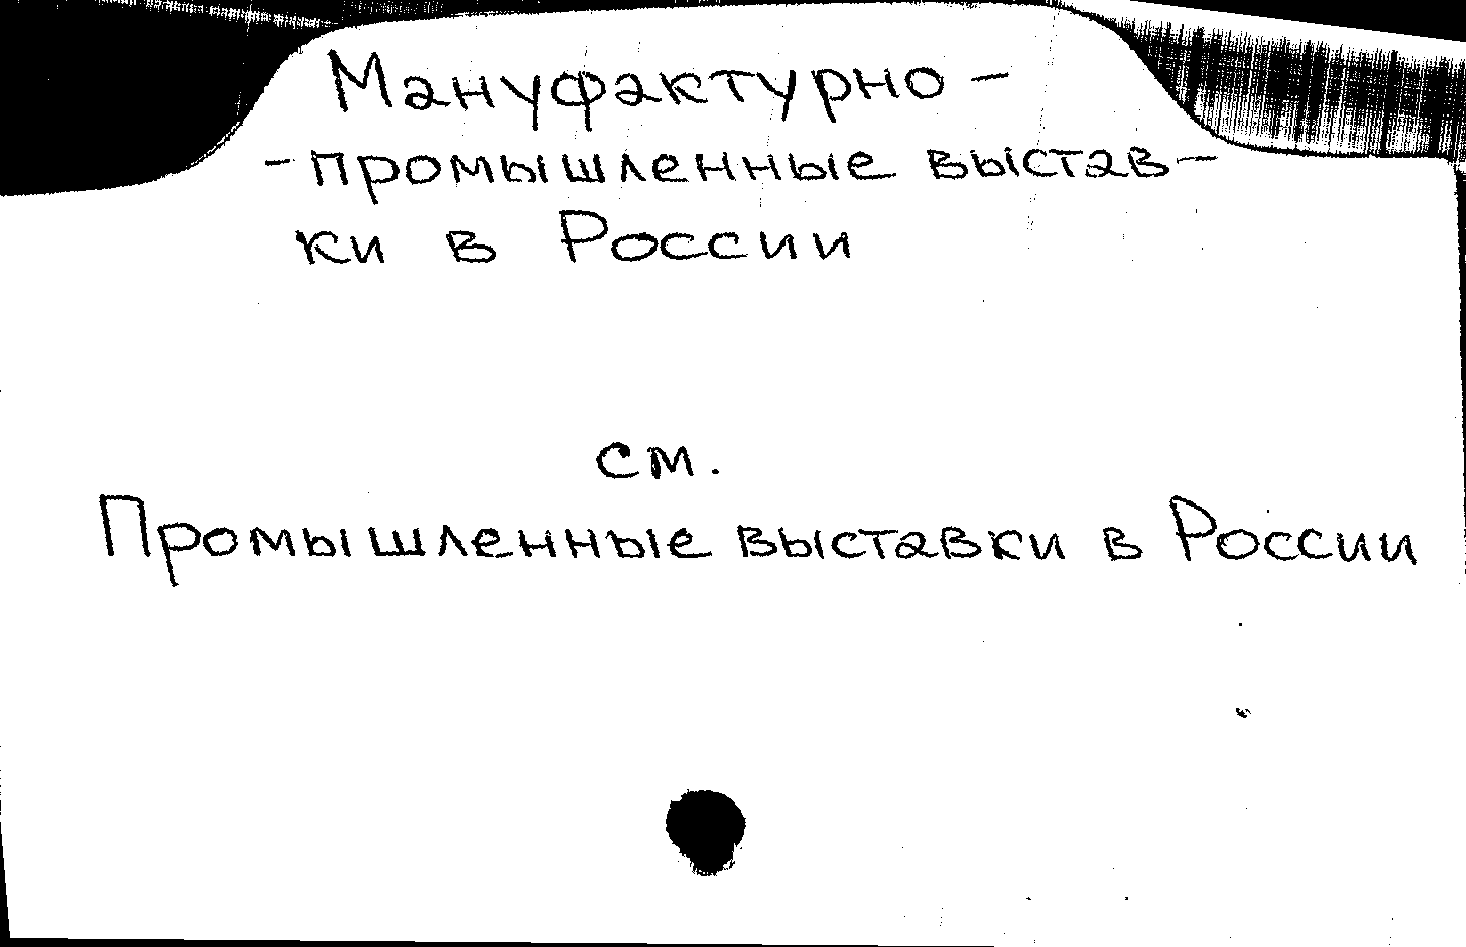 Мануфактурно-
-промышленные выстав-
ки в России
см.
Промышленные выставки в России